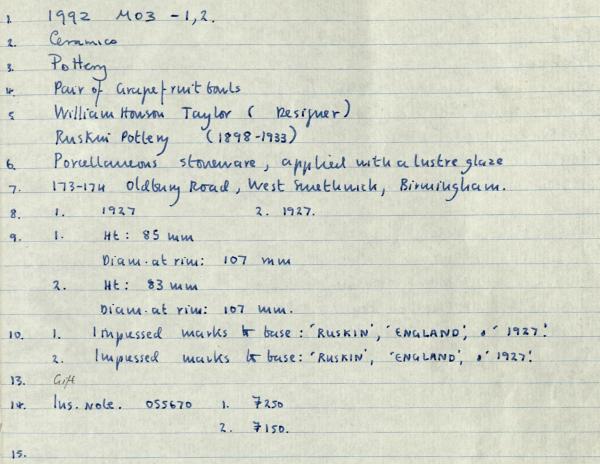 1. 1992 M03 - 1,2.
2. Ceramics
3. Pottery
4. Pair of Grapefruit bowls
5 William Howson Taylor ( Designer )
Ruskin Pottery (1898-1933)
6. Porcellaneous stoneware, applied with a lustre glaze
7. 173-174 Oldbury Road, West Smethwick, Birmingham.
8. 1. 1927 2. 1927.
9. 1. Ht: 85 mm
Diam. at rim: 107 mm
2. Ht: 83 mm
Diam. at rim: 107 mm.
10. 1. Impressed marks to base: 'RUSKIN', 'ENGLAND', & '1927'.
2. Impressed marks to base: 'RUSKIN', 'ENGLAND', & '1927'.
13. Gift
14. Ins. Note. 055670 1. 7250
2. 7150.
15.